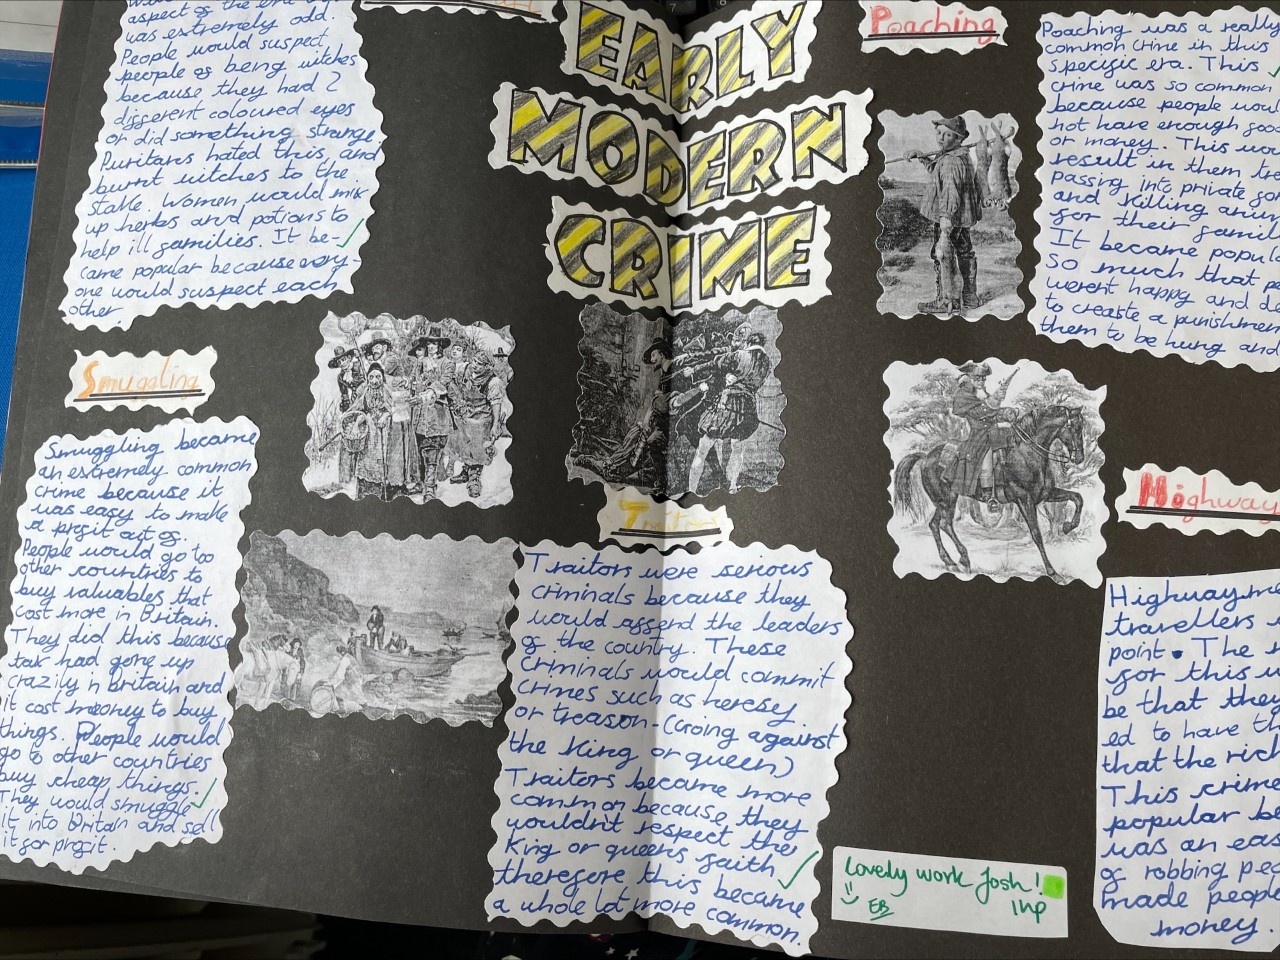 aspect of the era
was extremely odd.
People would suspect
people of being witches
because they had 2
different coloured eyes
or did something strange.
Puritans hated this, and
burnt witches to the
stake. Women would mix
up herbs and potions to
help ill families. It be-
came popular because every-
one would suspect each
other.
Smuggling
Smuggling became
an extremely common
crime because it
was easy to make
a profit out of.
People would go to
other countries to
buy valuables that
cost more in Britain.
They did this because
tax had gone up
crazily in Britain and
it cost money to buy
things. People would
go to other countries
buy cheap things.
They would smuggle
it into Britain and sell
it for profit.
EARLY
MODERN
CRIME
Traitors
Traitors were serious
criminals because they
would offend the leaders
of the country. These
criminals would commit
crimes such as heresy
or treason-(Going against
the King or queen)
Traitors became more
common because they
wouldn't respect the
King or queens faith
therefore this became
a whole lot more common.
Poaching
Poaching was a really
common crime in this
specific era. This
crime was so common
because people woul
not have enough food
or money. This wou
result in them tre
passing into private
and killing anim
for their famil
It became popula
so much that
werent happy and de
to create a punishmen
them to be hung and
Highway
Highwaym
travellers
point. The
for this w
be that they
ed to have th
that the rich
This crime
popular be
was an eas
of robbing peo
made people
money.
Lovely work Josh!
EB
1HP